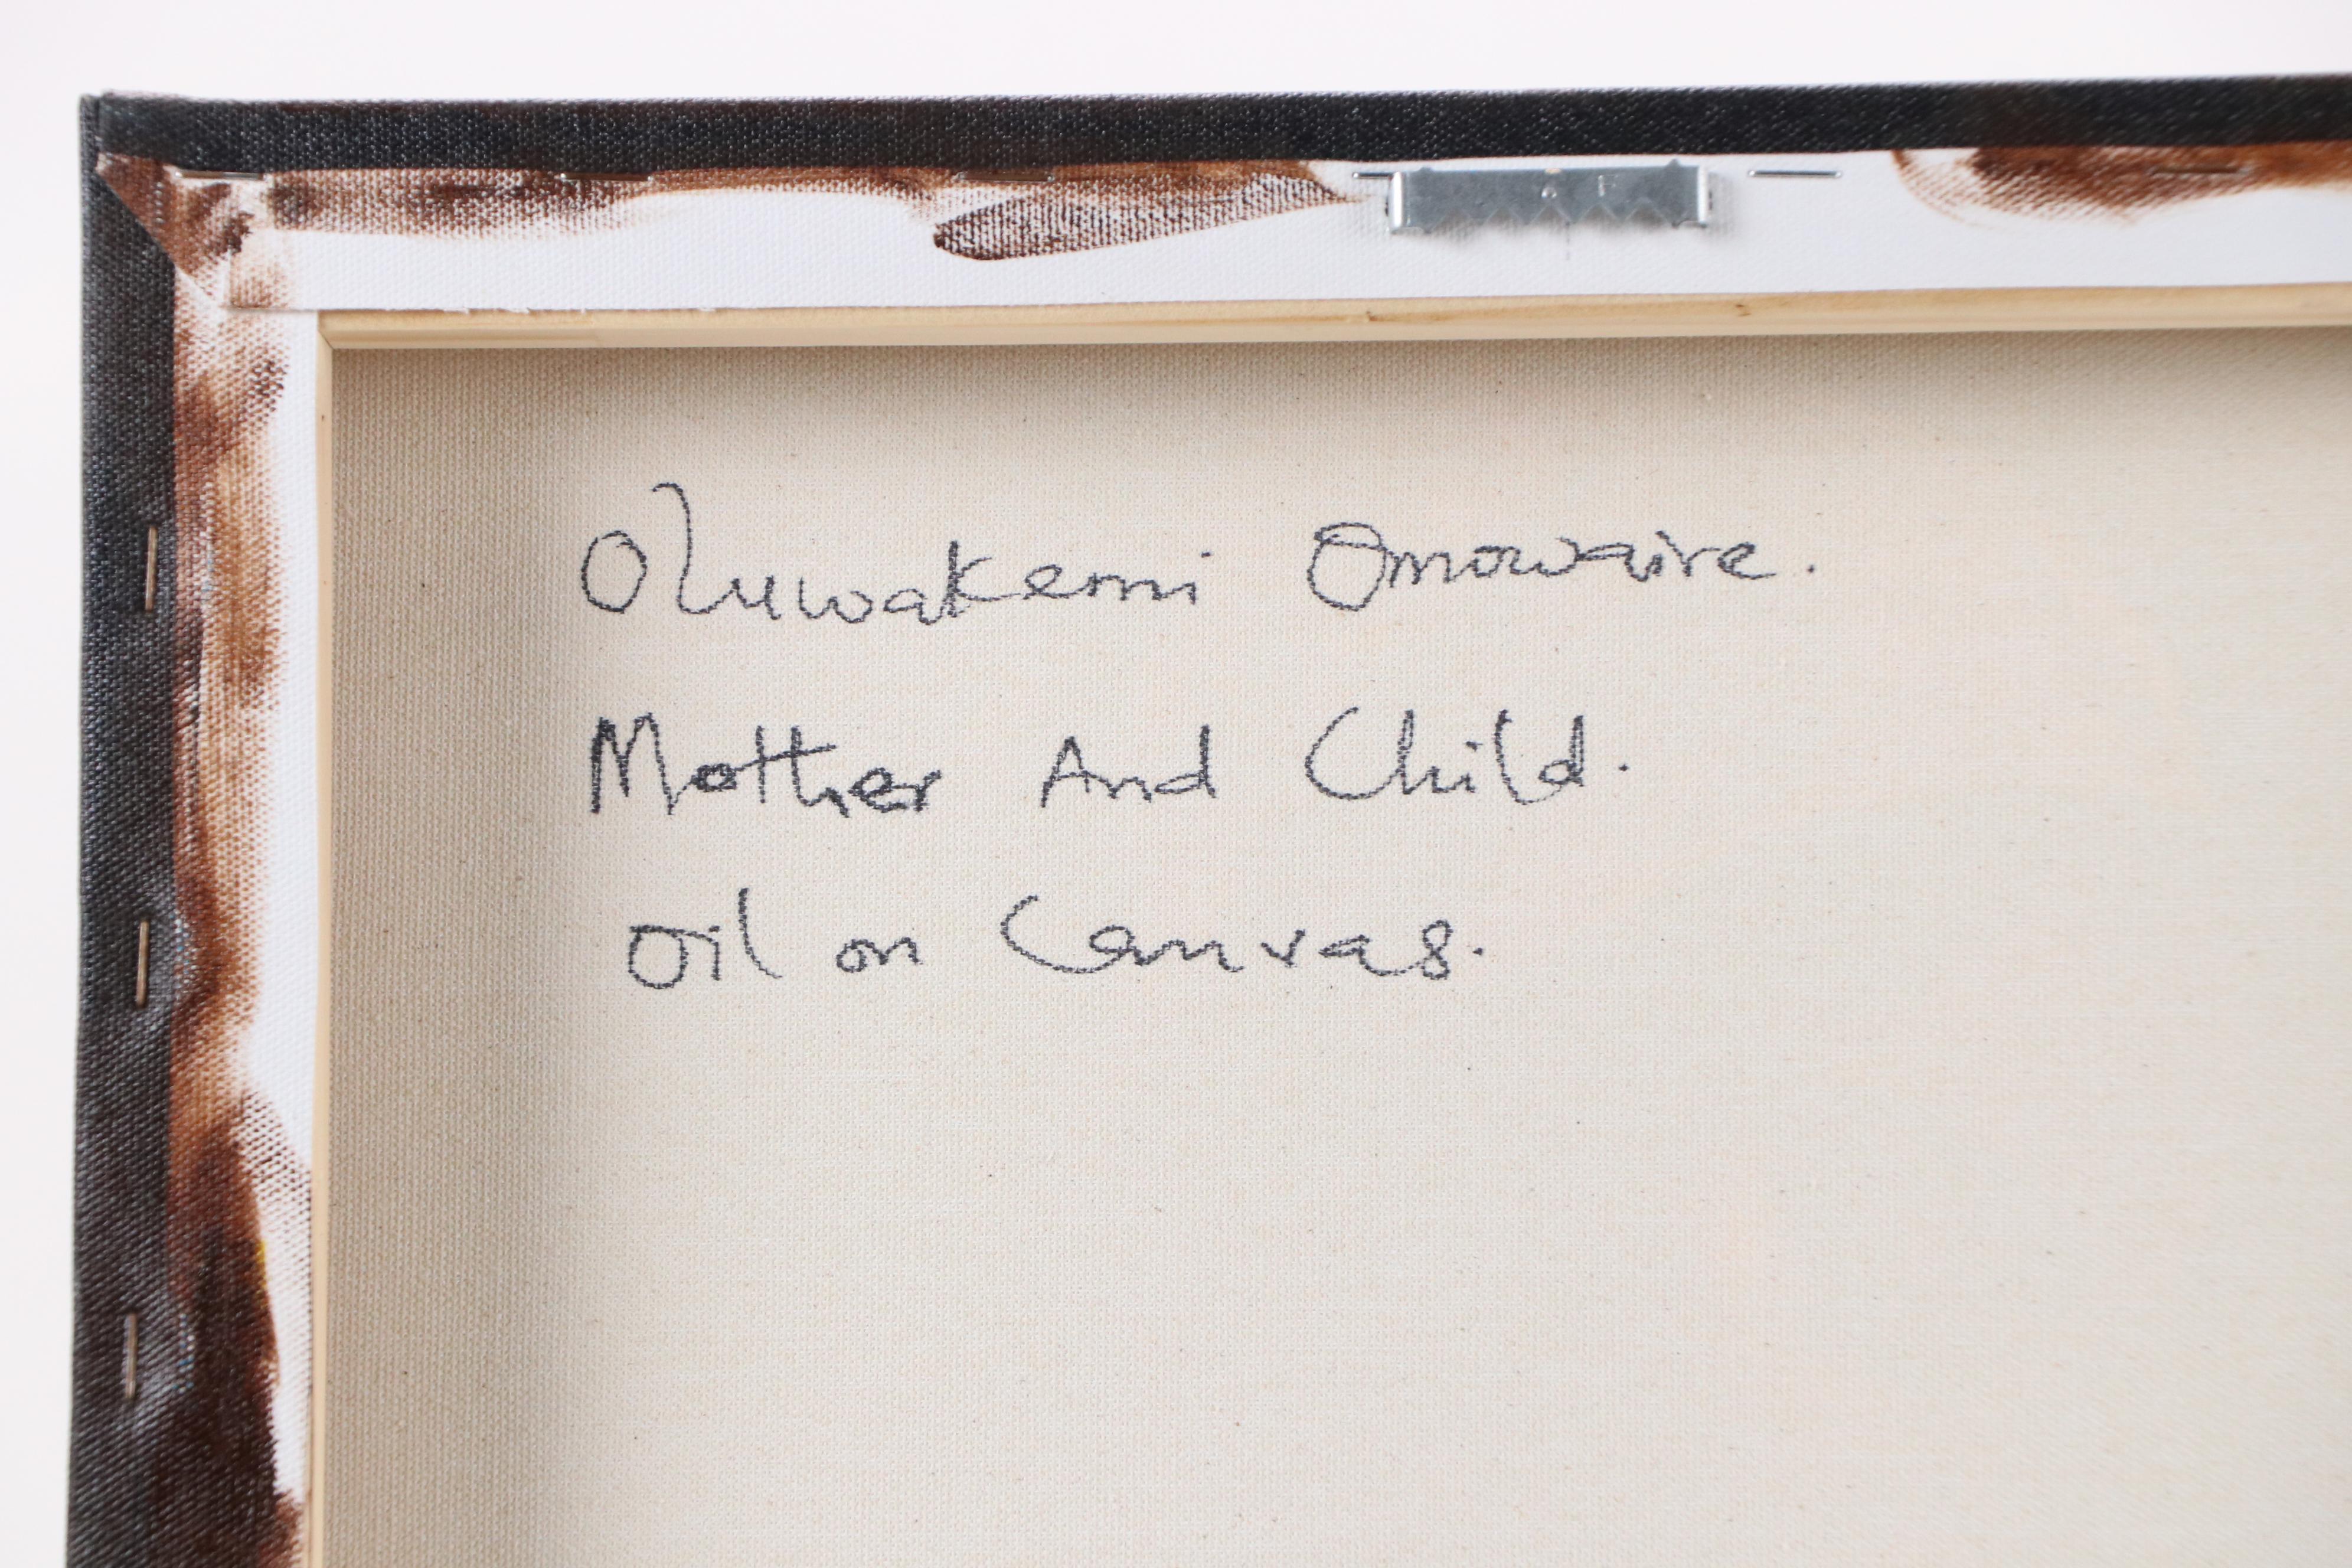 Oluwakemi Omowaire.
Mother And Child.
Oil on Canvas.